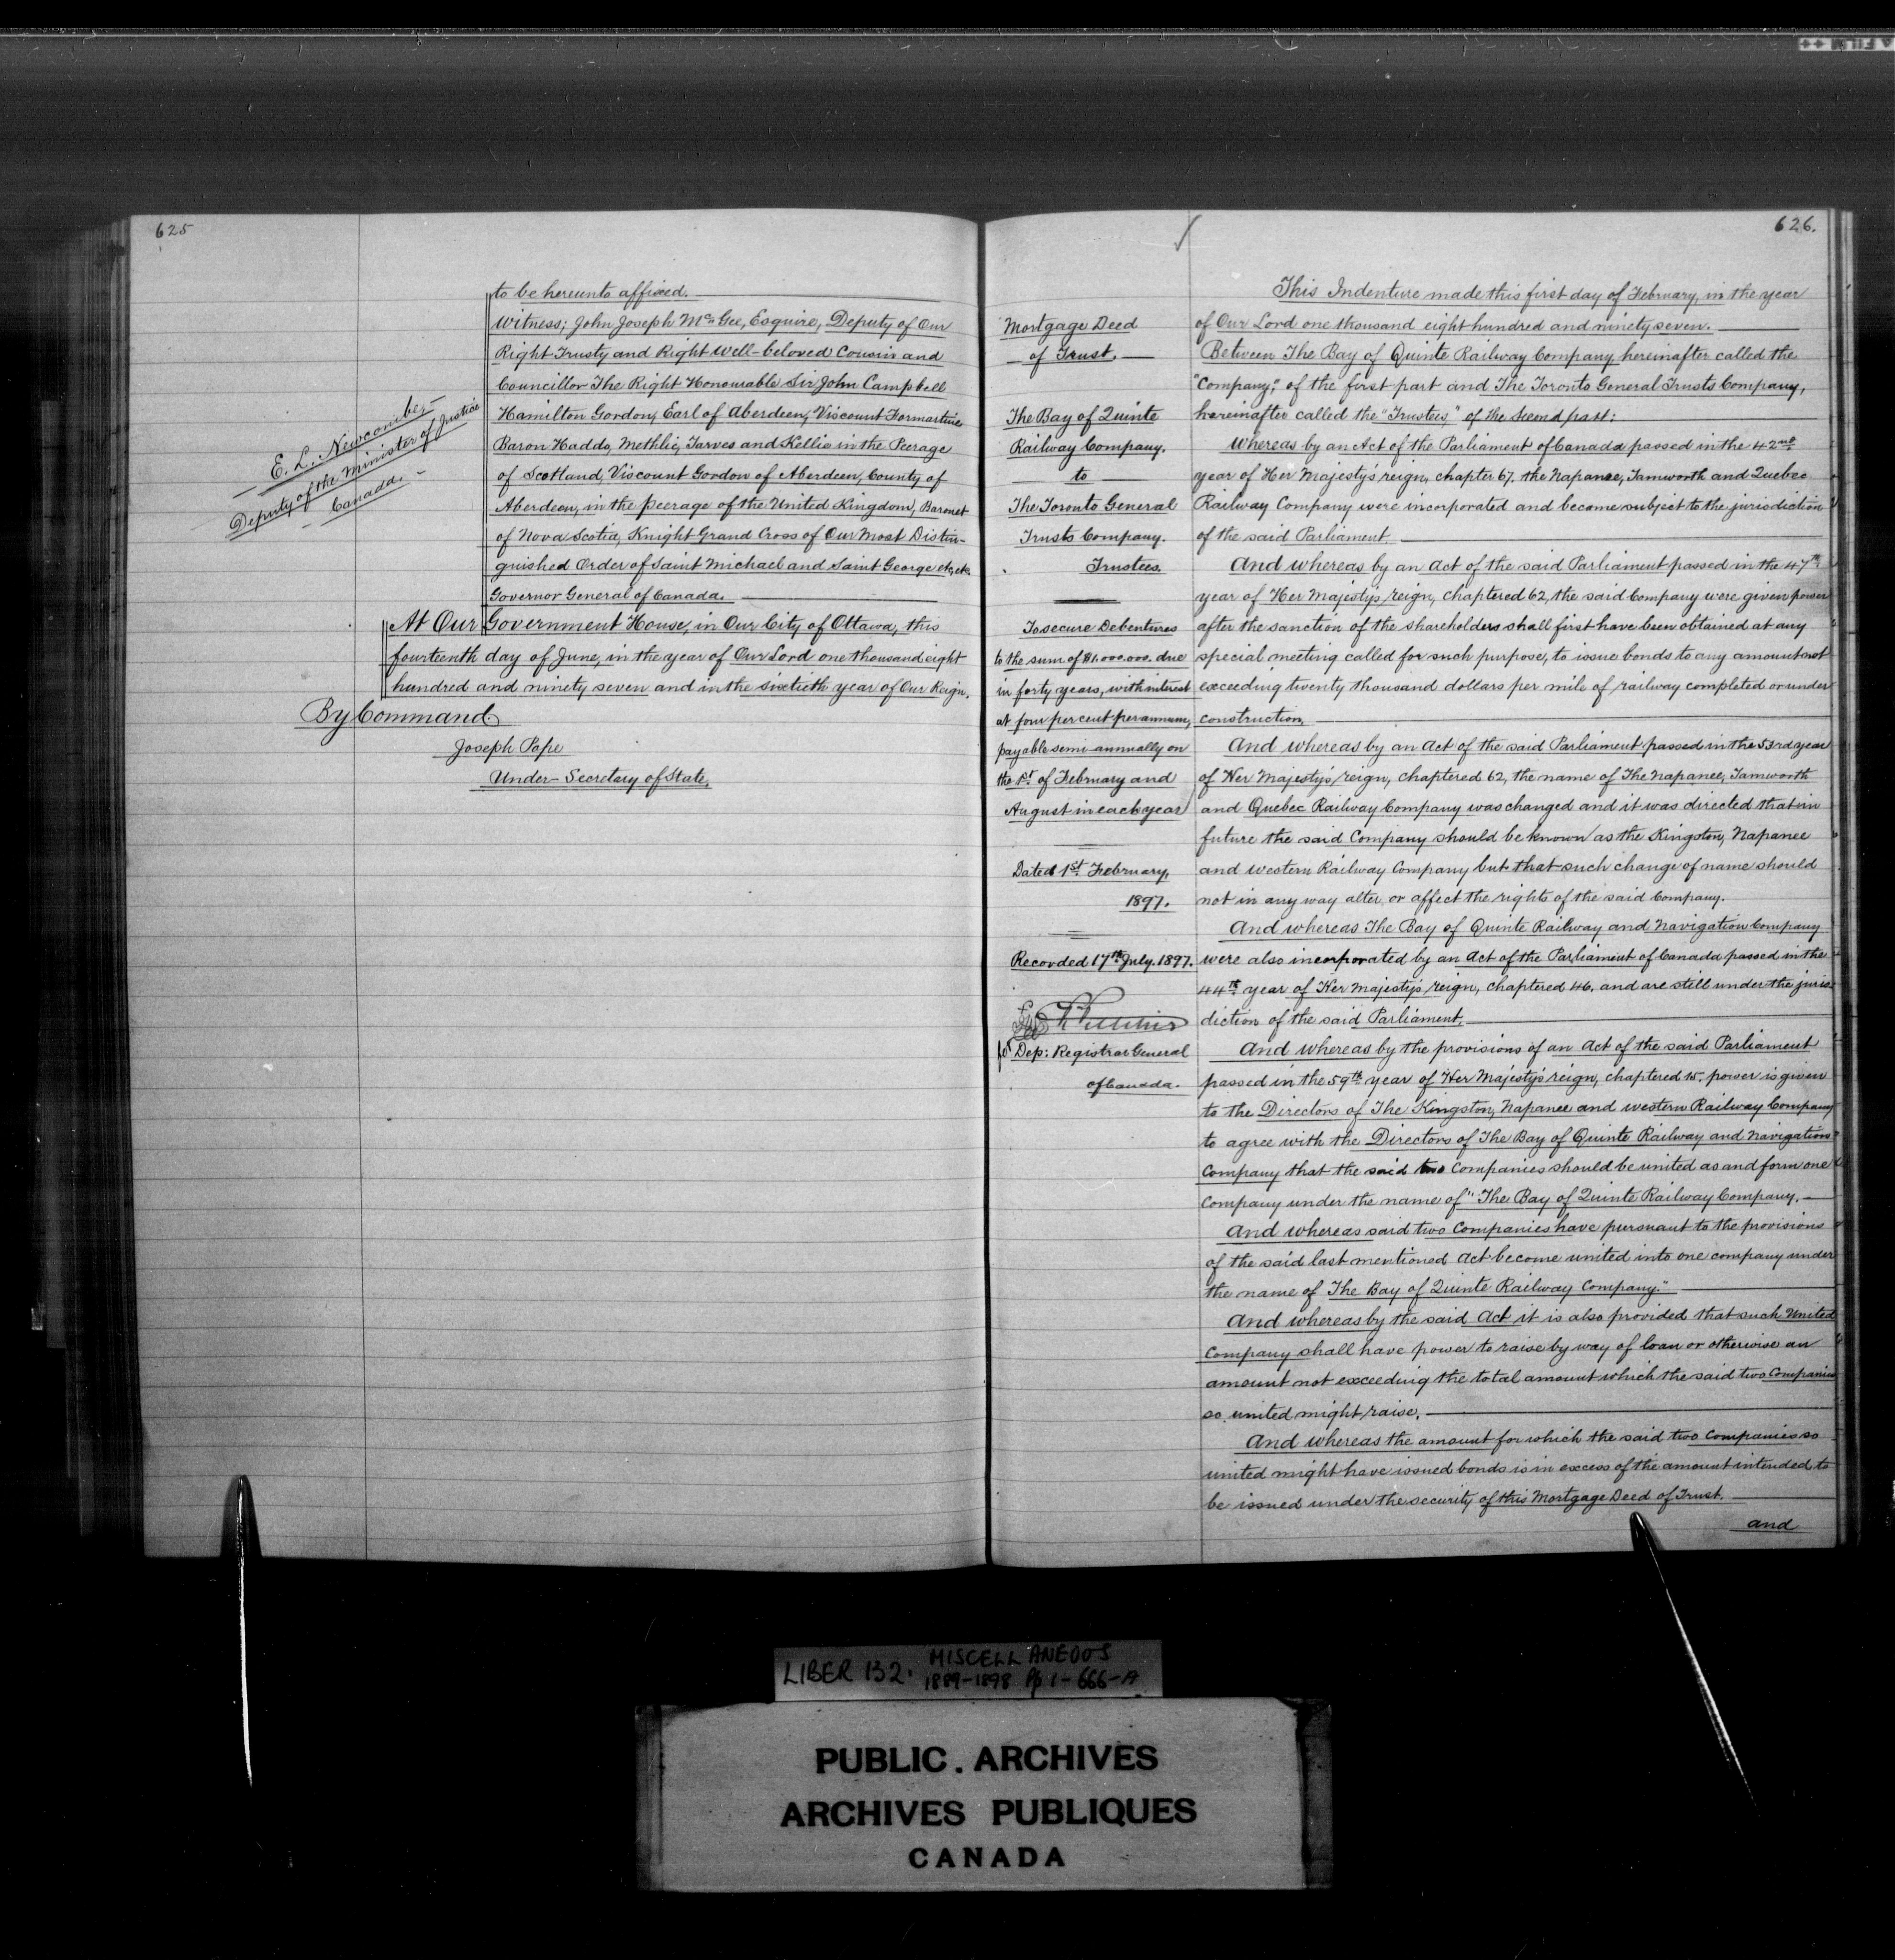 625
to be hereunto affixed.
Witness; John Joseph McGee, Esquire, Deputy of Our
Right Trusty and Right Well-beloved Cousin and
Councillor The Right Honourable Sir John Campbell
Hamilton Gordon, Earl of Aberdeen, Viscount Formartine
Baron Haddo, Methlic, Tarves and Kellie in the Peerage
of Scotland, Viscount Gordon of Aberdeen, County of
Aberdeen, in the peerage of the United Kingdom, Baronet
of Nova Scotia, Knight Grand Cross of Our Most Distin-
guished Order of Saint Michael and Saint George etc, etc.
Governor General of Canada.
E. L. Newcombe,
Deputy of the Minister of Justice
Canada.
At Our Government House, in Our City of Ottawa, this
fourteenth day of June, in the year of Our Lord one thousand eight
hundred and ninety seven and in the sixtieth year of Our Reign.
By Command.
Joseph Pope
Under-Secretary of State.
626.
Mortgage Deed
of Trust.
The Bay of Quinte
Railway Company.
to
The Toronto General
Trusts Company.
Trustees.
To secure Debentures
to the sum of $1.000.000. due
in forty years, with interest
at four per cent per annum,
payable semi-annually on
the 1st of February and
August in each year
Dated 1st February,
1897.
Recorded 17th July. 1897.
for Dep: Registrar General
of Canada.
This Indenture made this first day of February, in the year
of Our Lord one thousand eight hundred and ninety seven.
Between The Bay of Quinte Railway Company hereinafter called the
"Company", of the first part and The Toronto General Trusts Company,
hereinafter called the "Trustees," of the Second part:
Whereas by an Act of the Parliament of Canada passed in the 42nd
year of Her Majesty's reign, chapter 67. the Napanee, Tamworth and Quebec
Railway Company were incorporated and became subject to the jurisdiction
of the said Parliament
And whereas by an Act of the said Parliament passed in the 47th
year of Her Majesty's reign, chaptered 62, the said Company were given power
after the sanction of the shareholders shall first have been obtained at any
special meeting called for such purpose, to issue bonds to any amount not
exceeding twenty thousand dollars per mile of railway completed or under
construction.
And whereas by an Act of the said Parliament passed in the 53rd year
of Her Majesty's reign, chaptered 62, the name of The Napanee, Tamworth
and Quebec Railway Company was changed and it was directed that in
future the said Company should be known as the Kingston, Napanee
and Western Railway Company but that such change of name should
not in any way alter or affect the rights of the said Company.
And whereas The Bay of Quinte Railway and Navigation Company
were also incorporated by an Act of the Parliament of Canada passed in the
44th year of Her Majesty's reign, chaptered 46, and are still under the juris-
diction of the said Parliament.
And whereas by the provisions of an Act of the said Parliament
passed in the 59th year of Her Majesty's reign, chaptered 15. power is given
to the Directors of The Kingston, Napanee and Western Railway Company
to agree with the Directors of The Bay of Quinte Railway and Navigation
Company that the said two Companies should be united as and form one
Company under the name of "The Bay of Quinte Railway Company.
And whereas said two Companies have pursuant to the provisions
of the said last mentioned Act become united into one company under
the name of The Bay of Quinte Railway Company."
And whereas by the said Act it is also provided that such United
Company shall have power to raise by way of loan or otherwise an
amount not exceeding the total amount which the said two Companies
so united might raise.
And whereas the amount for which the said two Companies so
united might have issued bonds is in excess of the amount intended to
be issued under the security of this Mortgage Deed of Trust.
and
LIBER 132. MISCELLANEOUS
1889-1898 Pp 1-666-A
PUBLIC. ARCHIVES
ARCHIVES PUBLIQUES
CANADA